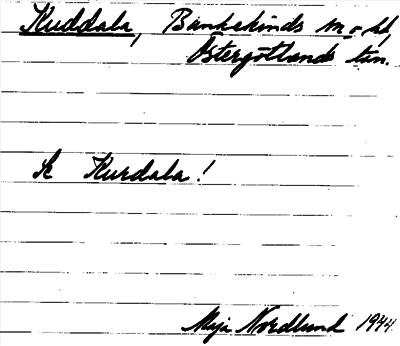 Kuddala, Bankekinds sn o. hd,
Östergötlands län.
Se Kurdala!
Maja Nordlund 1944.